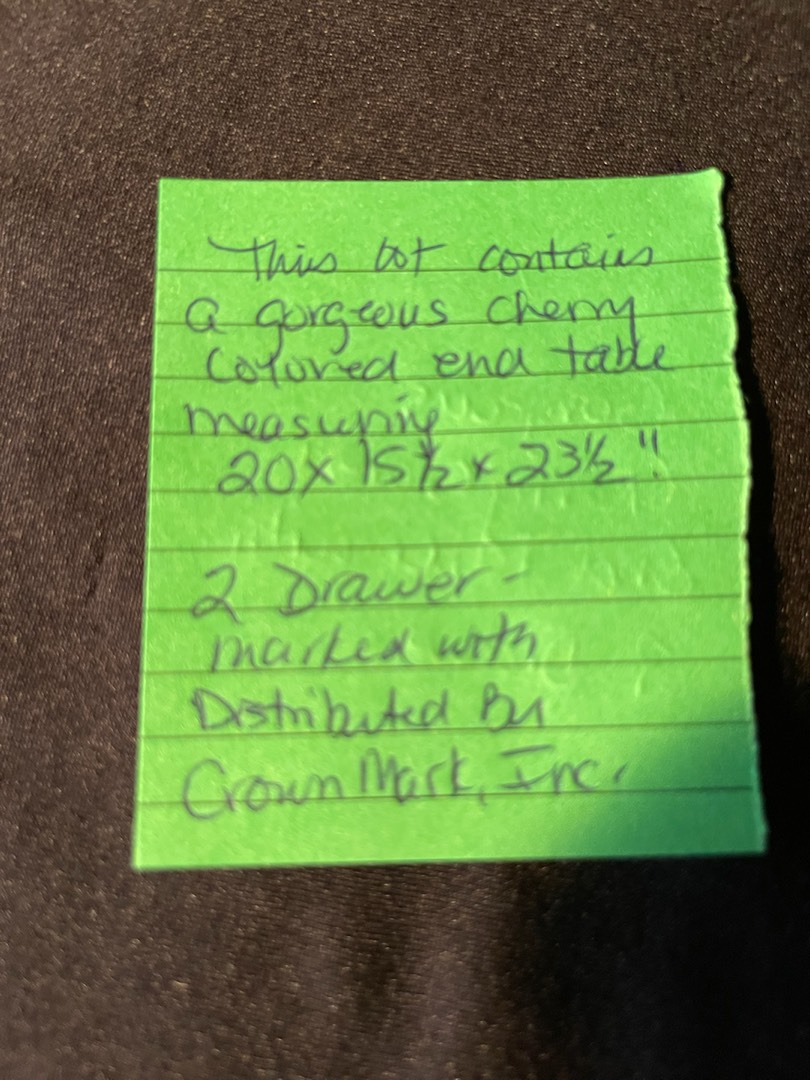 This lot contains
a gorgeous cherry
colored end table
measuring
20 x 15 1/2 x 23 1/2"
2 Drawer -
marked with
Distributed By
Crown Mark, Inc.